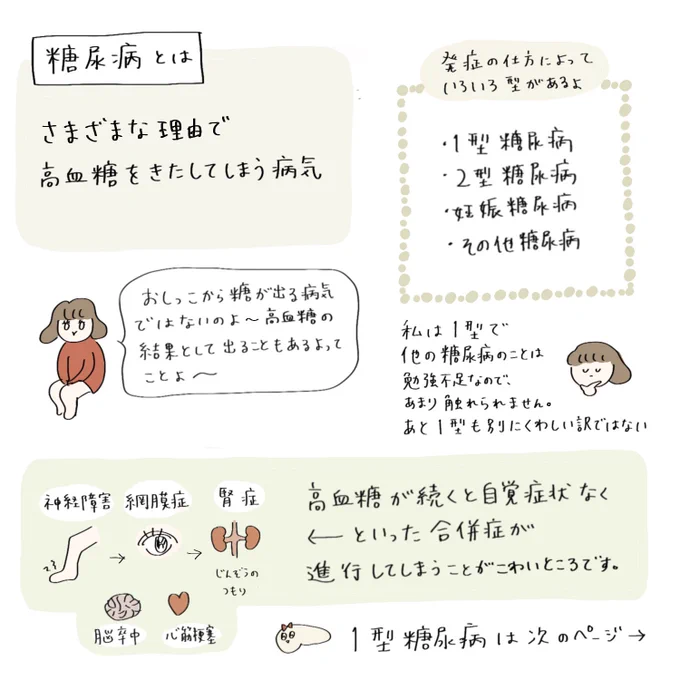 糖尿病とは
さまざまな理由で
高血糖をきたしてしまう病気
発症の仕方によって
いろいろ型があるよ
・1型糖尿病
・2型糖尿病
・妊娠糖尿病
・その他糖尿病
おしっこから糖が出る病気
ではないのよ〜高血糖の
結果として出ることもあるよって
ことよ〜
私は1型で
他の糖尿病のことは
勉強不足なので、
あまり触れられません。
あと1型も別にくわしい訳ではない
神経障害
網膜症
腎症
じんぞうの
つもり
脳卒中
心筋梗塞
高血糖が続くと自覚症状なく
←といった合併症が
進行してしまうことがこわいところです。
1型糖尿病は次のページ→